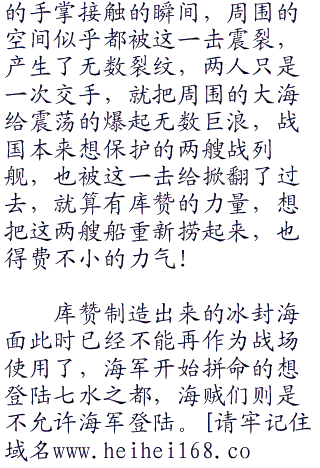 的手掌接触的瞬间，周围的
空间似乎都被这一击震裂，
产生了无数裂纹，两人只是
一次交手，就把周围的大海
给震荡的爆起无数巨浪，战
国本来想保护的两艘战列
舰，也被这一击给掀翻了过
去，就算有库赞的力量，想
把这两艘船重新捞起来，也
得费不小的力气！
库赞制造出来的冰封海
面此时已经不能再作为战场
使用了，海军开始拼命的想
登陆七水之都，海贼们则是
不允许海军登陆。[请牢记住
域名www.heihei168.co